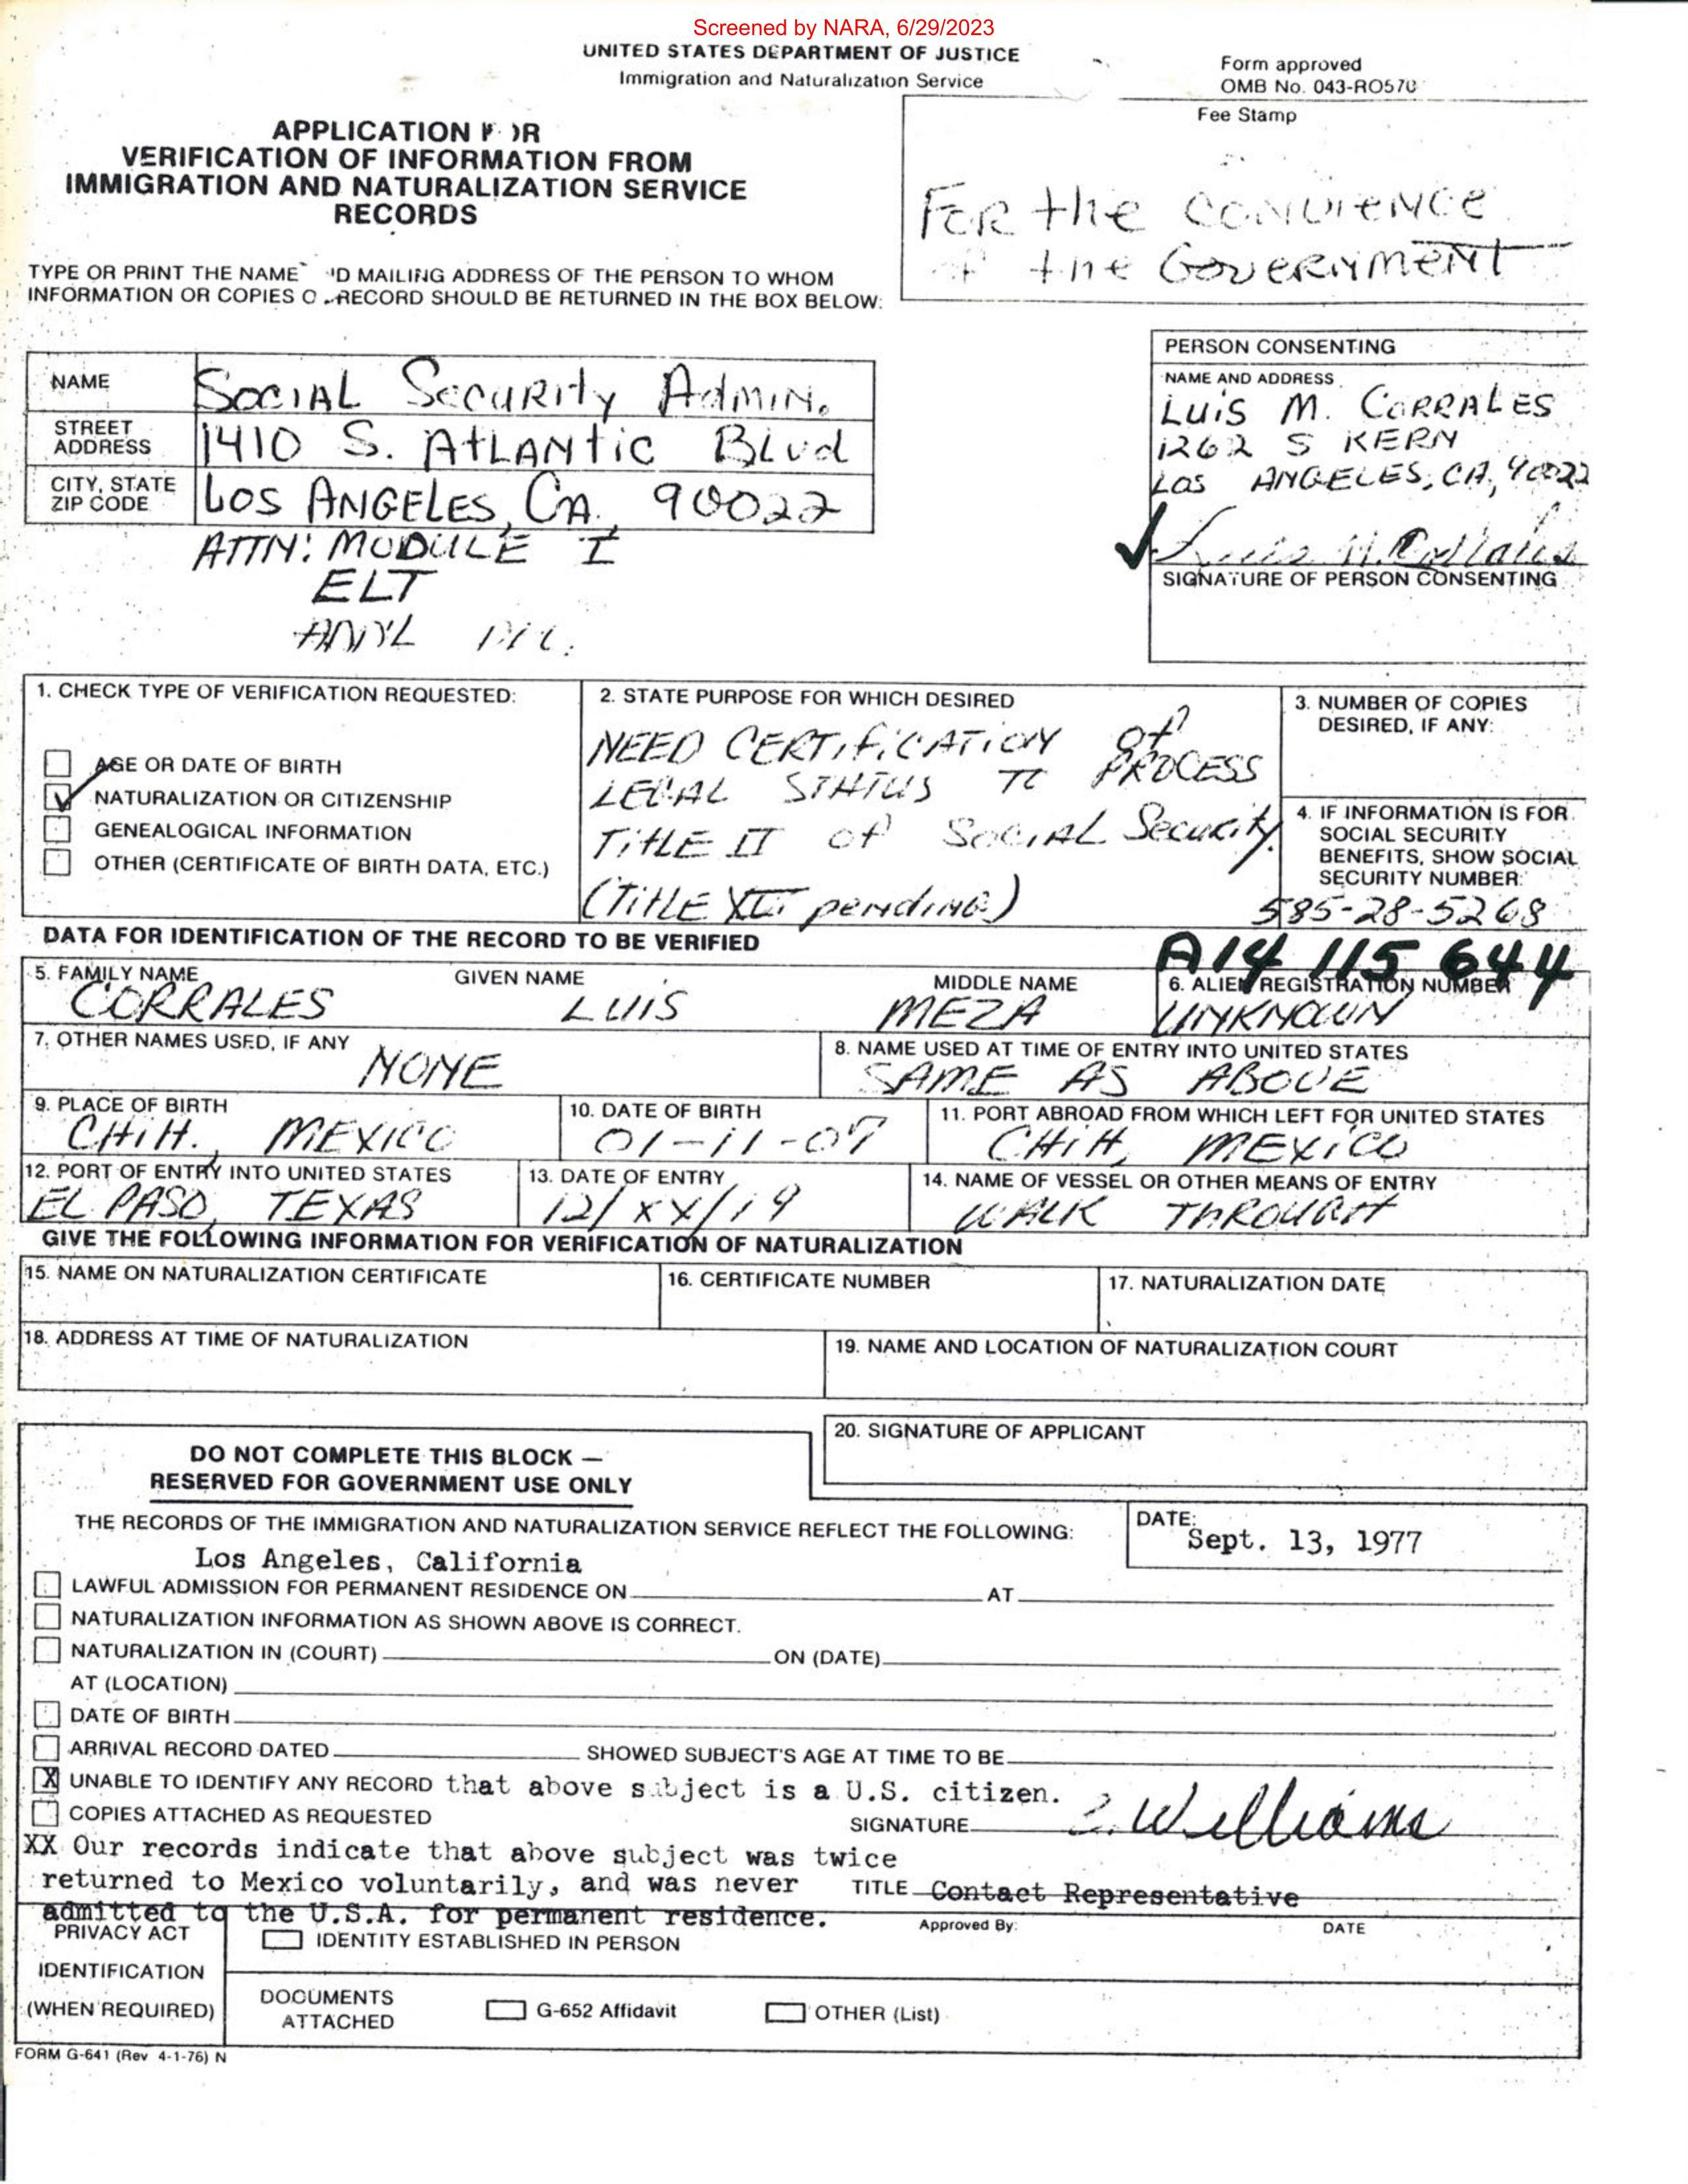 Screened by NARA, 6/29/2023
UNITED STATES DEPARTMENT OF JUSTICE
Immigration and Naturalization Service
Form approved
OMB No. 043-RO570
Fee Stamp
APPLICATION F OR
VERIFICATION OF INFORMATION FROM
IMMIGRATION AND NATURALIZATION SERVICE
RECORDS
FOR the CONVIENCE
of the GOVERNMENT
TYPE OR PRINT THE NAME 'D MAILING ADDRESS OF THE PERSON TO WHOM
INFORMATION OR COPIES O RECORD SHOULD BE RETURNED IN THE BOX BELOW:
NAME SOCIAL SECURITY ADMIN.
STREET ADDRESS 1410 S. ATLANTIC BLVD
CITY, STATE ZIP CODE LOS ANGELES, CA. 90022
ATTN: MODULE I
ELT
PERSON CONSENTING
NAME AND ADDRESS
LUIS M. CORRALES
1262 S KERN
LOS ANGELES, CA, 90022
Luis M. Corrales
SIGNATURE OF PERSON CONSENTING
1. CHECK TYPE OF VERIFICATION REQUESTED:
AGE OR DATE OF BIRTH
NATURALIZATION OR CITIZENSHIP
GENEALOGICAL INFORMATION
OTHER (CERTIFICATE OF BIRTH DATA, ETC.)
2. STATE PURPOSE FOR WHICH DESIRED
NEED CERTIFICATION of
LEGAL STATUS TO PROCESS
TITLE II of SOCIAL Security.
(TITLE XVI pending)
3. NUMBER OF COPIES
DESIRED, IF ANY:
4. IF INFORMATION IS FOR
SOCIAL SECURITY
BENEFITS, SHOW SOCIAL
SECURITY NUMBER:
585-28-5268
DATA FOR IDENTIFICATION OF THE RECORD TO BE VERIFIED
A14 115 644
5. FAMILY NAME GIVEN NAME MIDDLE NAME
CORRALES LUIS MEZA
6. ALIEN REGISTRATION NUMBER
UNKNOWN
7. OTHER NAMES USED, IF ANY
NONE
8. NAME USED AT TIME OF ENTRY INTO UNITED STATES
SAME AS ABOVE
9. PLACE OF BIRTH
CHIH. MEXICO
10. DATE OF BIRTH
01-11-07
11. PORT ABROAD FROM WHICH LEFT FOR UNITED STATES
CHIH, MEXICO
12. PORT OF ENTRY INTO UNITED STATES
EL PASO, TEXAS
13. DATE OF ENTRY
12/XX/19
14. NAME OF VESSEL OR OTHER MEANS OF ENTRY
WALK THROUGH
GIVE THE FOLLOWING INFORMATION FOR VERIFICATION OF NATURALIZATION
15. NAME ON NATURALIZATION CERTIFICATE
16. CERTIFICATE NUMBER
17. NATURALIZATION DATE
18. ADDRESS AT TIME OF NATURALIZATION
19. NAME AND LOCATION OF NATURALIZATION COURT
20. SIGNATURE OF APPLICANT
DO NOT COMPLETE THIS BLOCK —
RESERVED FOR GOVERNMENT USE ONLY
THE RECORDS OF THE IMMIGRATION AND NATURALIZATION SERVICE REFLECT THE FOLLOWING:
DATE:
Sept. 13, 1977
Los Angeles, California
LAWFUL ADMISSION FOR PERMANENT RESIDENCE ON AT
NATURALIZATION INFORMATION AS SHOWN ABOVE IS CORRECT.
NATURALIZATION IN (COURT) ON (DATE)
AT (LOCATION)
DATE OF BIRTH
ARRIVAL RECORD DATED SHOWED SUBJECT'S AGE AT TIME TO BE
X UNABLE TO IDENTIFY ANY RECORD that above subject is a U.S. citizen.
COPIES ATTACHED AS REQUESTED
SIGNATURE Williams
XX Our records indicate that above subject was twice
returned to Mexico voluntarily, and was never
TITLE Contact Representative
admitted to the U.S.A. for permanent residence.
Approved By: DATE
PRIVACY ACT
IDENTIFICATION
(WHEN REQUIRED)
IDENTITY ESTABLISHED IN PERSON
DOCUMENTS
ATTACHED
G-652 Affidavit
OTHER (List)
FORM G-641 (Rev 4-1-76) N